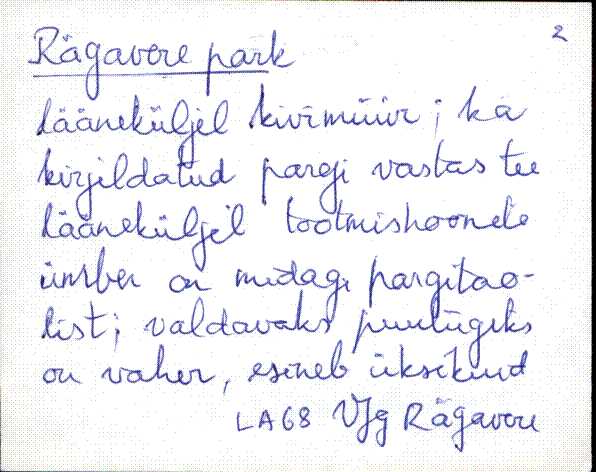 2
Rägavere park
Lääneküljel kivimüür; ka
kirjildatud pargi vastas tee
lääneküljel tootmishoonete
ümber on midagi pargitao-
list; valdavaks puuliigiks
on vaher, esineb üksikuid
LA68 VJg Rägavere